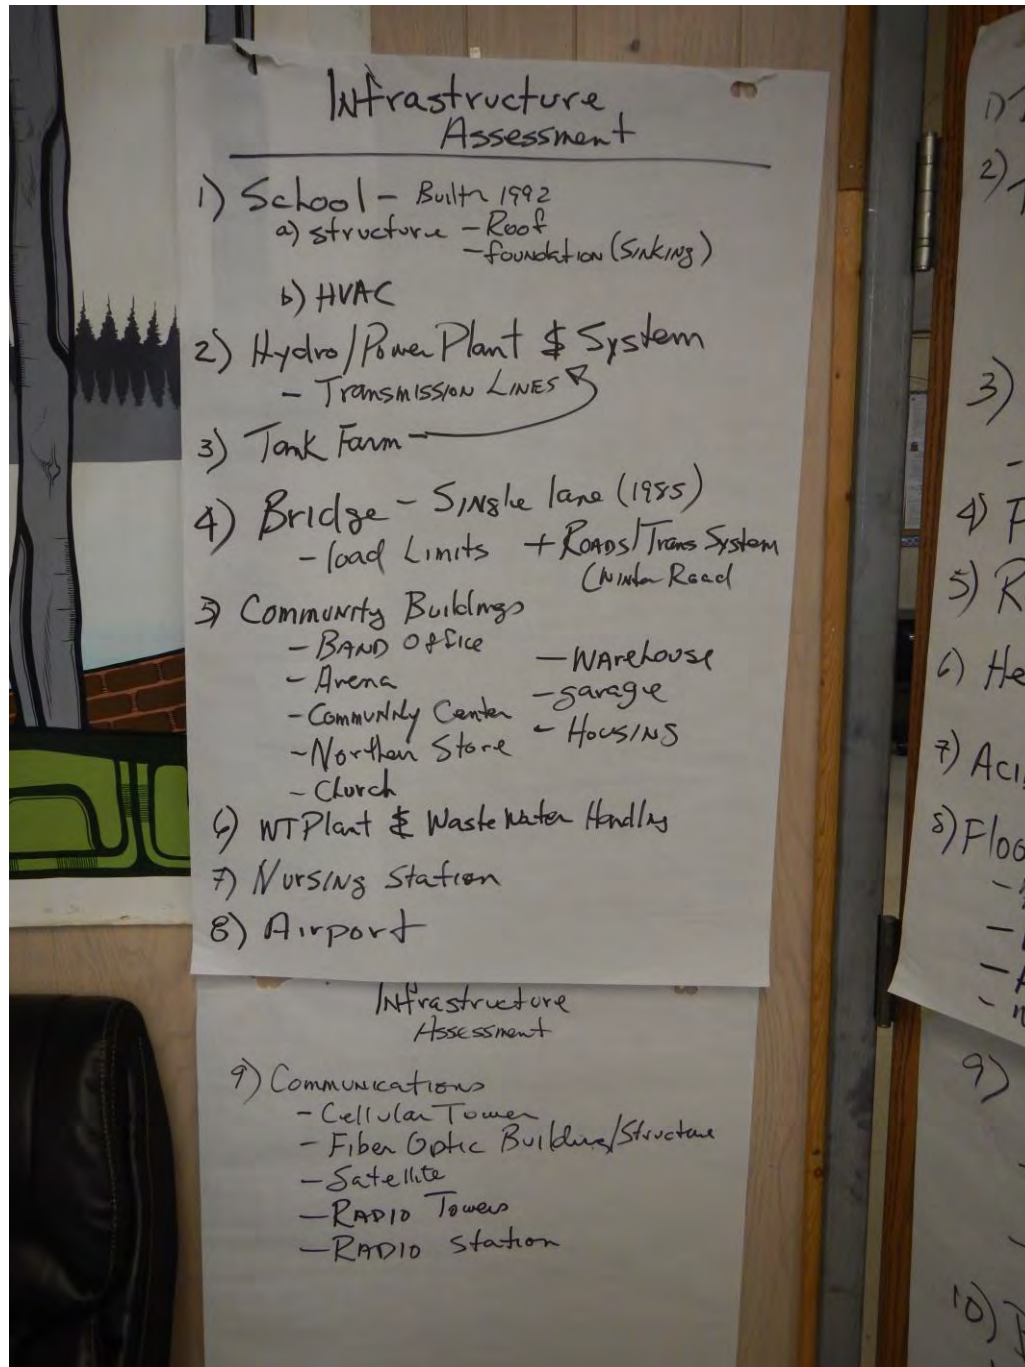 Infrastructure
Assessment
1) School - Built 1992
a) structure - Roof
- foundation (sinking)
b) HVAC
2) Hydro/Power Plant & System
- Transmission Lines
3) Tank Farm -
4) Bridge - Single lane (1985)
- load Limits + Roads/Trans System
(Winter Road
5) Community Buildings
- Band Office
- Arena
- Community Center
- Northern Store
- Church
- Warehouse
- garage
- Housing
6) WT Plant & Waste Water Handling
7) Nursing Station
8) Airport
Infrastructure
Assessment
9) Communications
- Cellular Tower
- Fiber Optic Building/Structure
- Satellite
- Radio Towers
- Radio Station
1)
2)
3)
4)
5) R
6) He
7) Aci
8) Floo
9)
10)